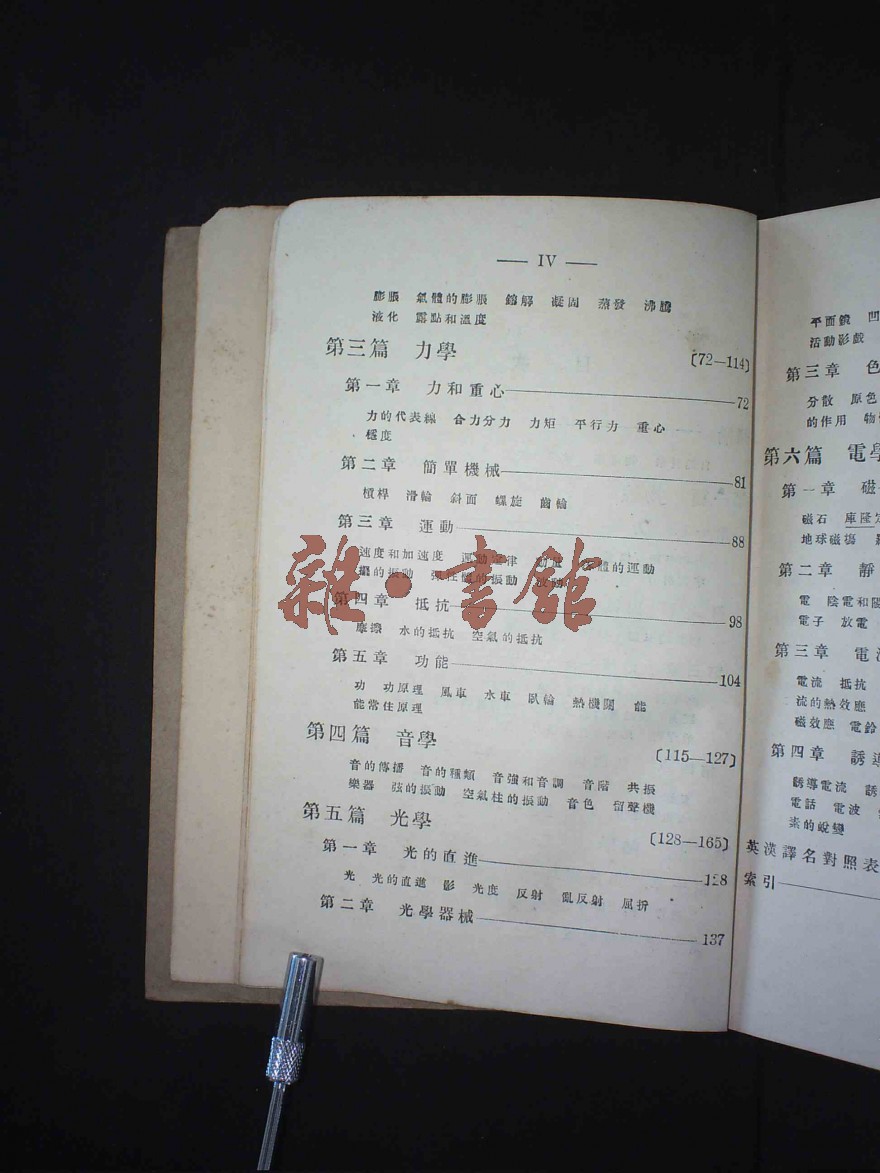 — IV —
膨脹 氣體的膨脹 鎔解 凝固 蒸發 沸騰
液化 露點和溫度
第三篇 力學 〔72—114〕
第一章 力和重心 72
力的代表線 合力分力 力矩 平行力 重心
穩度
第二章 簡單機械 81
槓桿 滑輪 斜面 螺旋 齒輪
第三章 運動 88
速度和加速度 運動定律 體的運動
擺的振動 彈性體的振動 波動
第四章 抵抗 98
摩擦 水的抵抗 空氣的抵抗
第五章 功能 104
功 功原理 風車 水車 臥輪 熱機關 能
能常住原理
第四篇 音學 〔115—127〕
音的傳播 音的種類 音強和音調 音階 共振
樂器 弦的振動 空氣柱的振動 音色 留聲機
第五篇 光學 〔128—165〕
第一章 光的直進 128
光 光的直進 影 光度 反射 亂反射 屈折
第二章 光學器械 137
雜·書館
平面鏡 凹
活動影戲
第三章 色
分散 原色
的作用 物
第六篇 電學
第一章 磁
磁石 庫隆定
地球磁場
第二章 靜
電 陰電和陽
電子 放電
第三章 電流
電流 抵抗
流的熱效應
磁效應 電鈴
第四章 誘導
誘導電流 誘
電話 電波
素的蛻變
英漢譯名對照表
索引